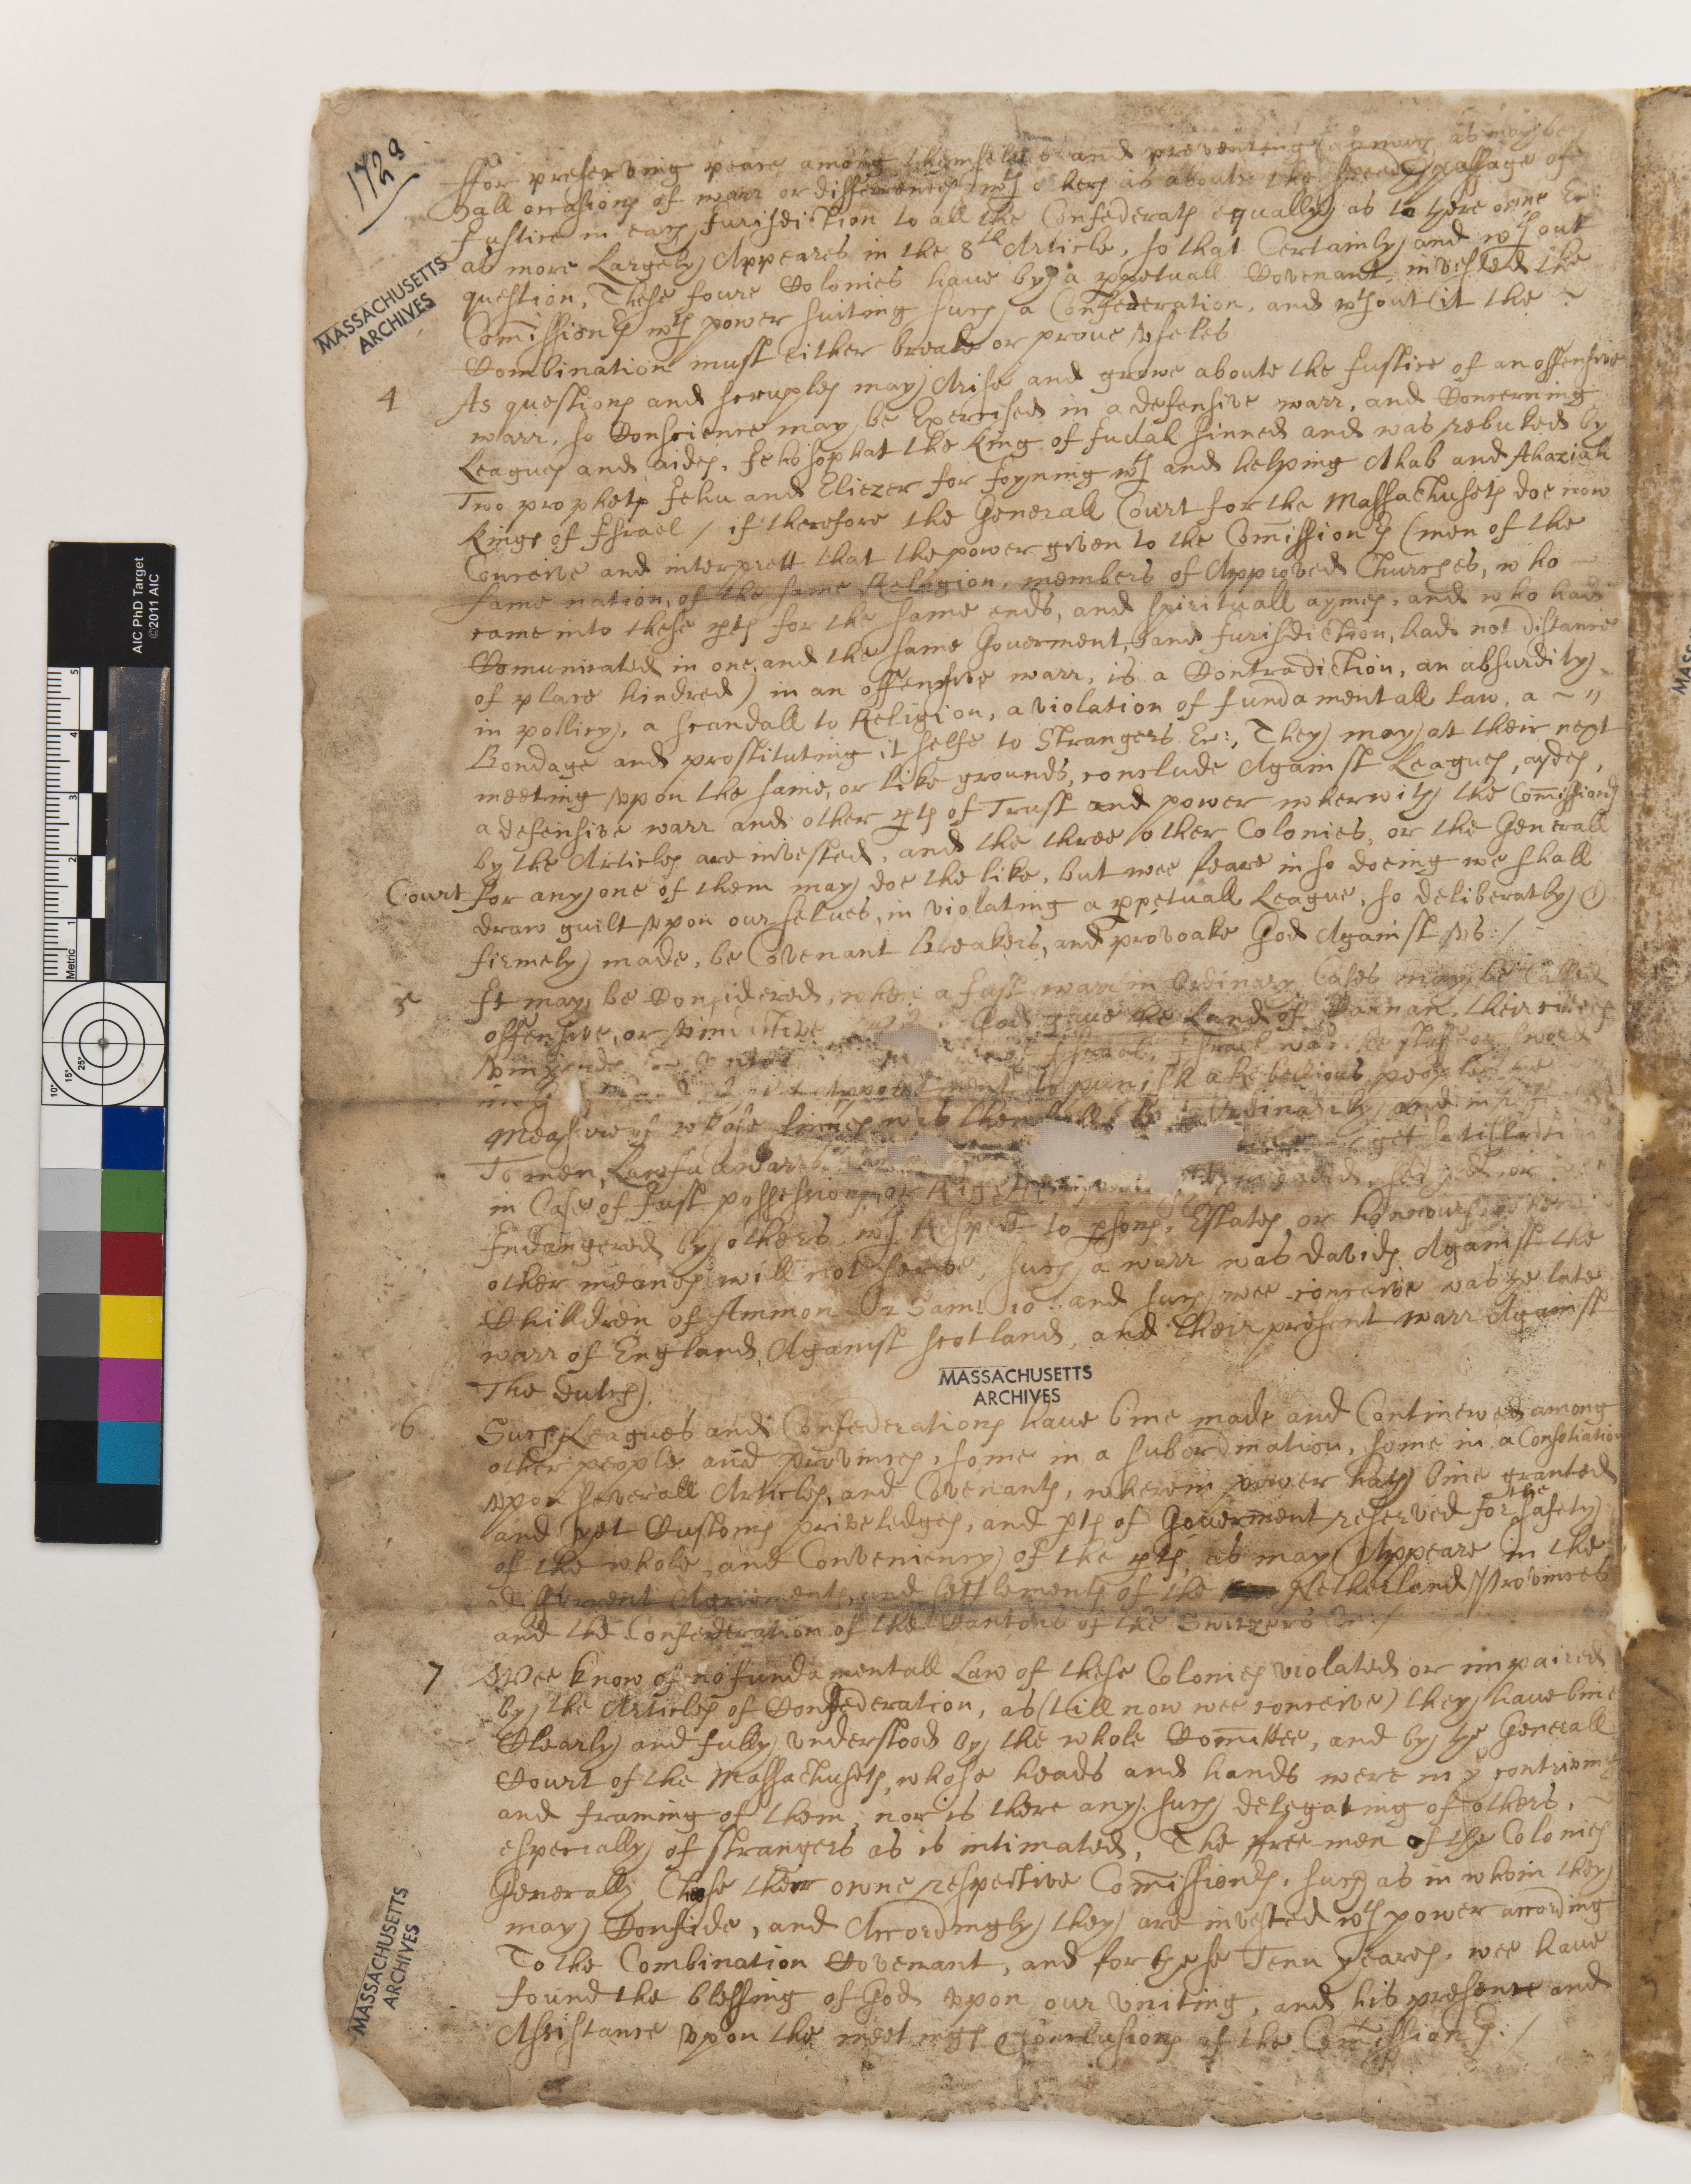 172a
ffor preserving peace among themselves and preventing as much as may be
all occasions of warr or differences wth others as about the speedy passage of
Justice in each Jurisdiction to all the Confederats equally as to their owne &c
as more Largely Appeares in the 8th Article, so that Certainly and wth out
question, These foure Colonies have by a ppetuall Covenant invested the
Comissionrs wth power suiting such a Confederation, and wthout it the
Combination must either breake or prove vseles
4 As questions and scruples may Arise and growe aboute the Justice of an offensive
warr, so Conscience may be Exercised in a defensive warr, and Concerning
Leagues and aides, Jehosophat the King of Judah sinned and was rebuked by
Two prophets Jehu and Eliezer for Joyning wth and helping Ahab and Ahaziah
Kings of Israel / if therefore the Generall Court for the Massachusets doe now
Conceive and interprett that the power given to the Comissionrs (men of the
same nation, of the same Religion, members of Approved Churches, who
came into these pts for the same ends, and spirituall aymes, and who had
Comunicated in one, and the same Goverment, and Jurisdiction, had not distance
of place hindred) in an offensive warr, is a Contradiction, an absurdity
in pollicy, a scandall to Religion, a violation of fundamentall law, a
Bondage and prostituting it selfe to Strangers &c:, They may at their next
meeting vpon the same, or like grounds, conclude Against Leagues, aydes,
a defensive warr and other pts of Trust and power wherwith the Comissionrs
by the Articles are invested, and the three other Colonies, or the Generall
Court for any one of them may doe the like, but wee feare in so doeing we shall
draw guilt vpon our selues, in violating a ppetuall League, so deliberatly &
firmely made, be Covenant Breakers, and provoake God Against vs: /
5 It may be Considered, whe a Just warr in Ordinary Cases may be Called
offensive, or vindictive God gave the Land of Canaan,
Israel, Israel was the staffe or sword
Appointment to punish a rebellious people the
Measure of whose sinnes was then Ordinarily and in
To men, Lawfull warr get satisfaction
in Case of Just possessions, or Rights or
Indangered by others, wth Respect to psons, Estates, or honnours, when
other meanes will not serve, such a warr was Davids Against the
Children of Ammon 2 Sam: 10: and such wee conceive was ye late
warr of England Against Scotland, and their present warr Against
The Dutch.
MASSACHUSETTS
ARCHIVES
6 Such Leagues and Confederations have bine made and Continewed among
other people and provinces, some in a subordination, some in a Consotiation
vpon severall Articles, and Covenants, wherein power hath bine granted
and yet Customs priveledges, and pts of Goverment reserved for the safety
of the whole, and Conveniency of the pts, as may Appeare in the
different Agriements, and settlements of the Netherland Provinces
and the Confederation of the Cantons of the Switzers &c: /
7 Wee know of no fundamentall Law of these Colonies violated or impaired
by the Articles of Confederation, as (till now wee conceive) they have bine
Clearly and fully vnderstood by the whole Comittee, and by ye Generall
Court of the Massachusets, whose heads and hands were in ye contriving
and framing of them; nor is there any such delegating of others,
especially of strangers as is intimated, The free men of the Colonies
Generally Chose their owne respective Comissionrs, such as in whom they
may Confide, and Accordingly they are invested wth power according
To the Combination Covenant, and for these Tenn yeares, wee have
found the blessing of God vpon our vniting, and his presence and
Assistance vpon the meetings & Conclusions of the Comissionrs: /
MASSACHUSETTS
ARCHIVES
MASSACHUSETTS
ARCHIVES
AIC PhD Target
©2011 AIC
Metric 1 2 3 4 5
10° 15° 25°